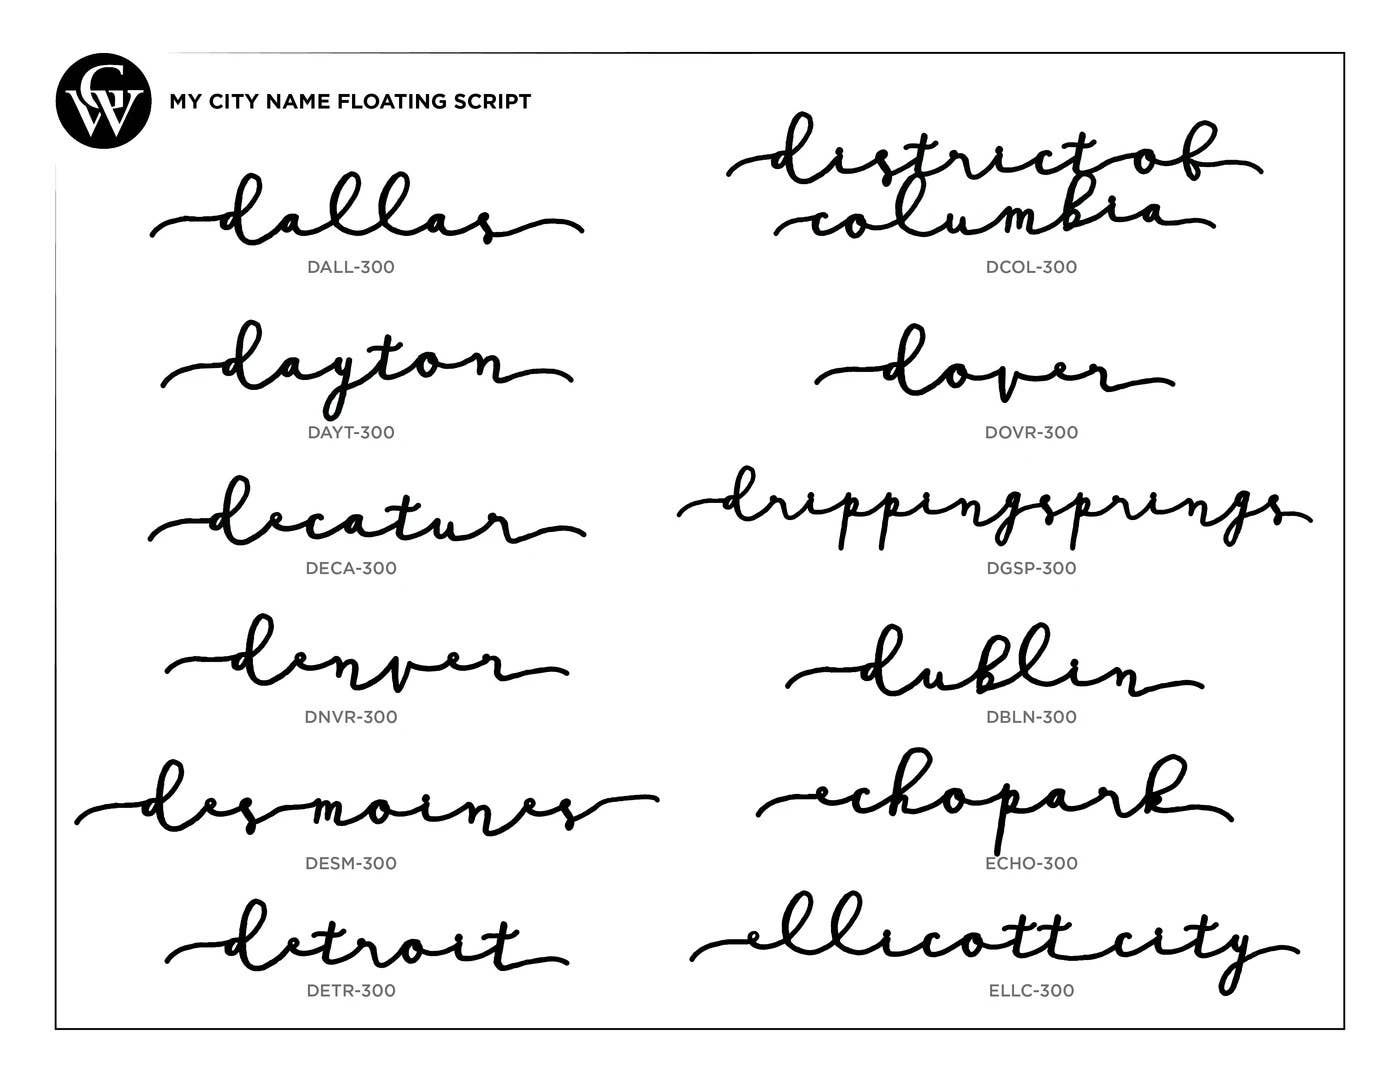 GW
MY CITY NAME FLOATING SCRIPT
dallas
DALL-300
dayton
DAYT-300
decatur
DECA-300
denver
DNVR-300
des moines
DESM-300
detroit
DETR-300
district of
columbia
DCOL-300
dover
DOVR-300
drippingsprings
DGSP-300
dublin
DBLN-300
echopark
ECHO-300
ellicott city
ELLC-300